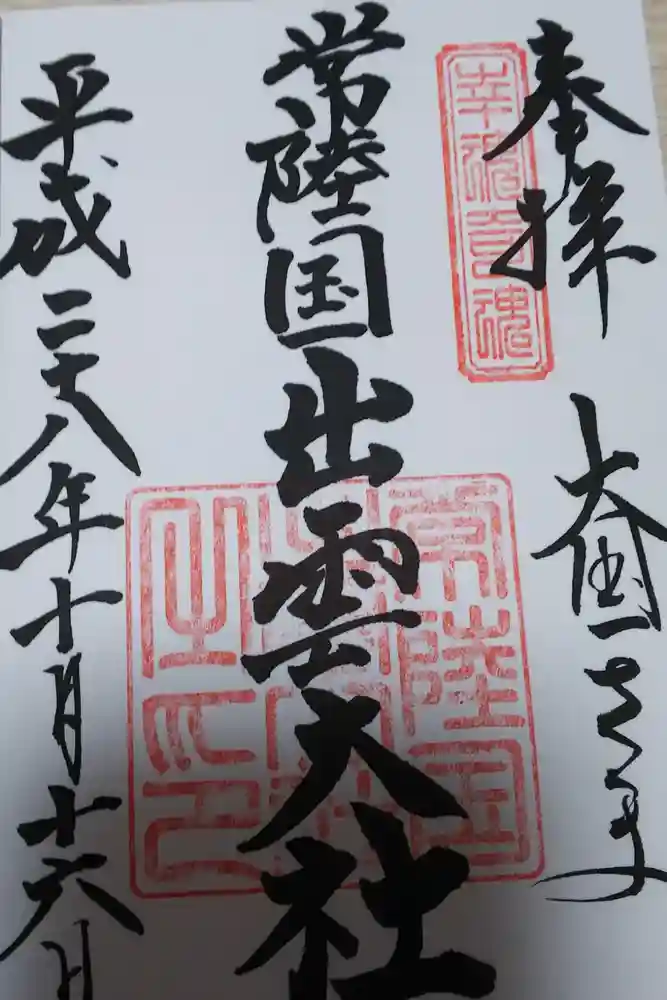 奉拝
大国さま
幸魂奇魂
常陸国出雲大社
常陸国
出雲大社
之印
平成二十八年十月十六日